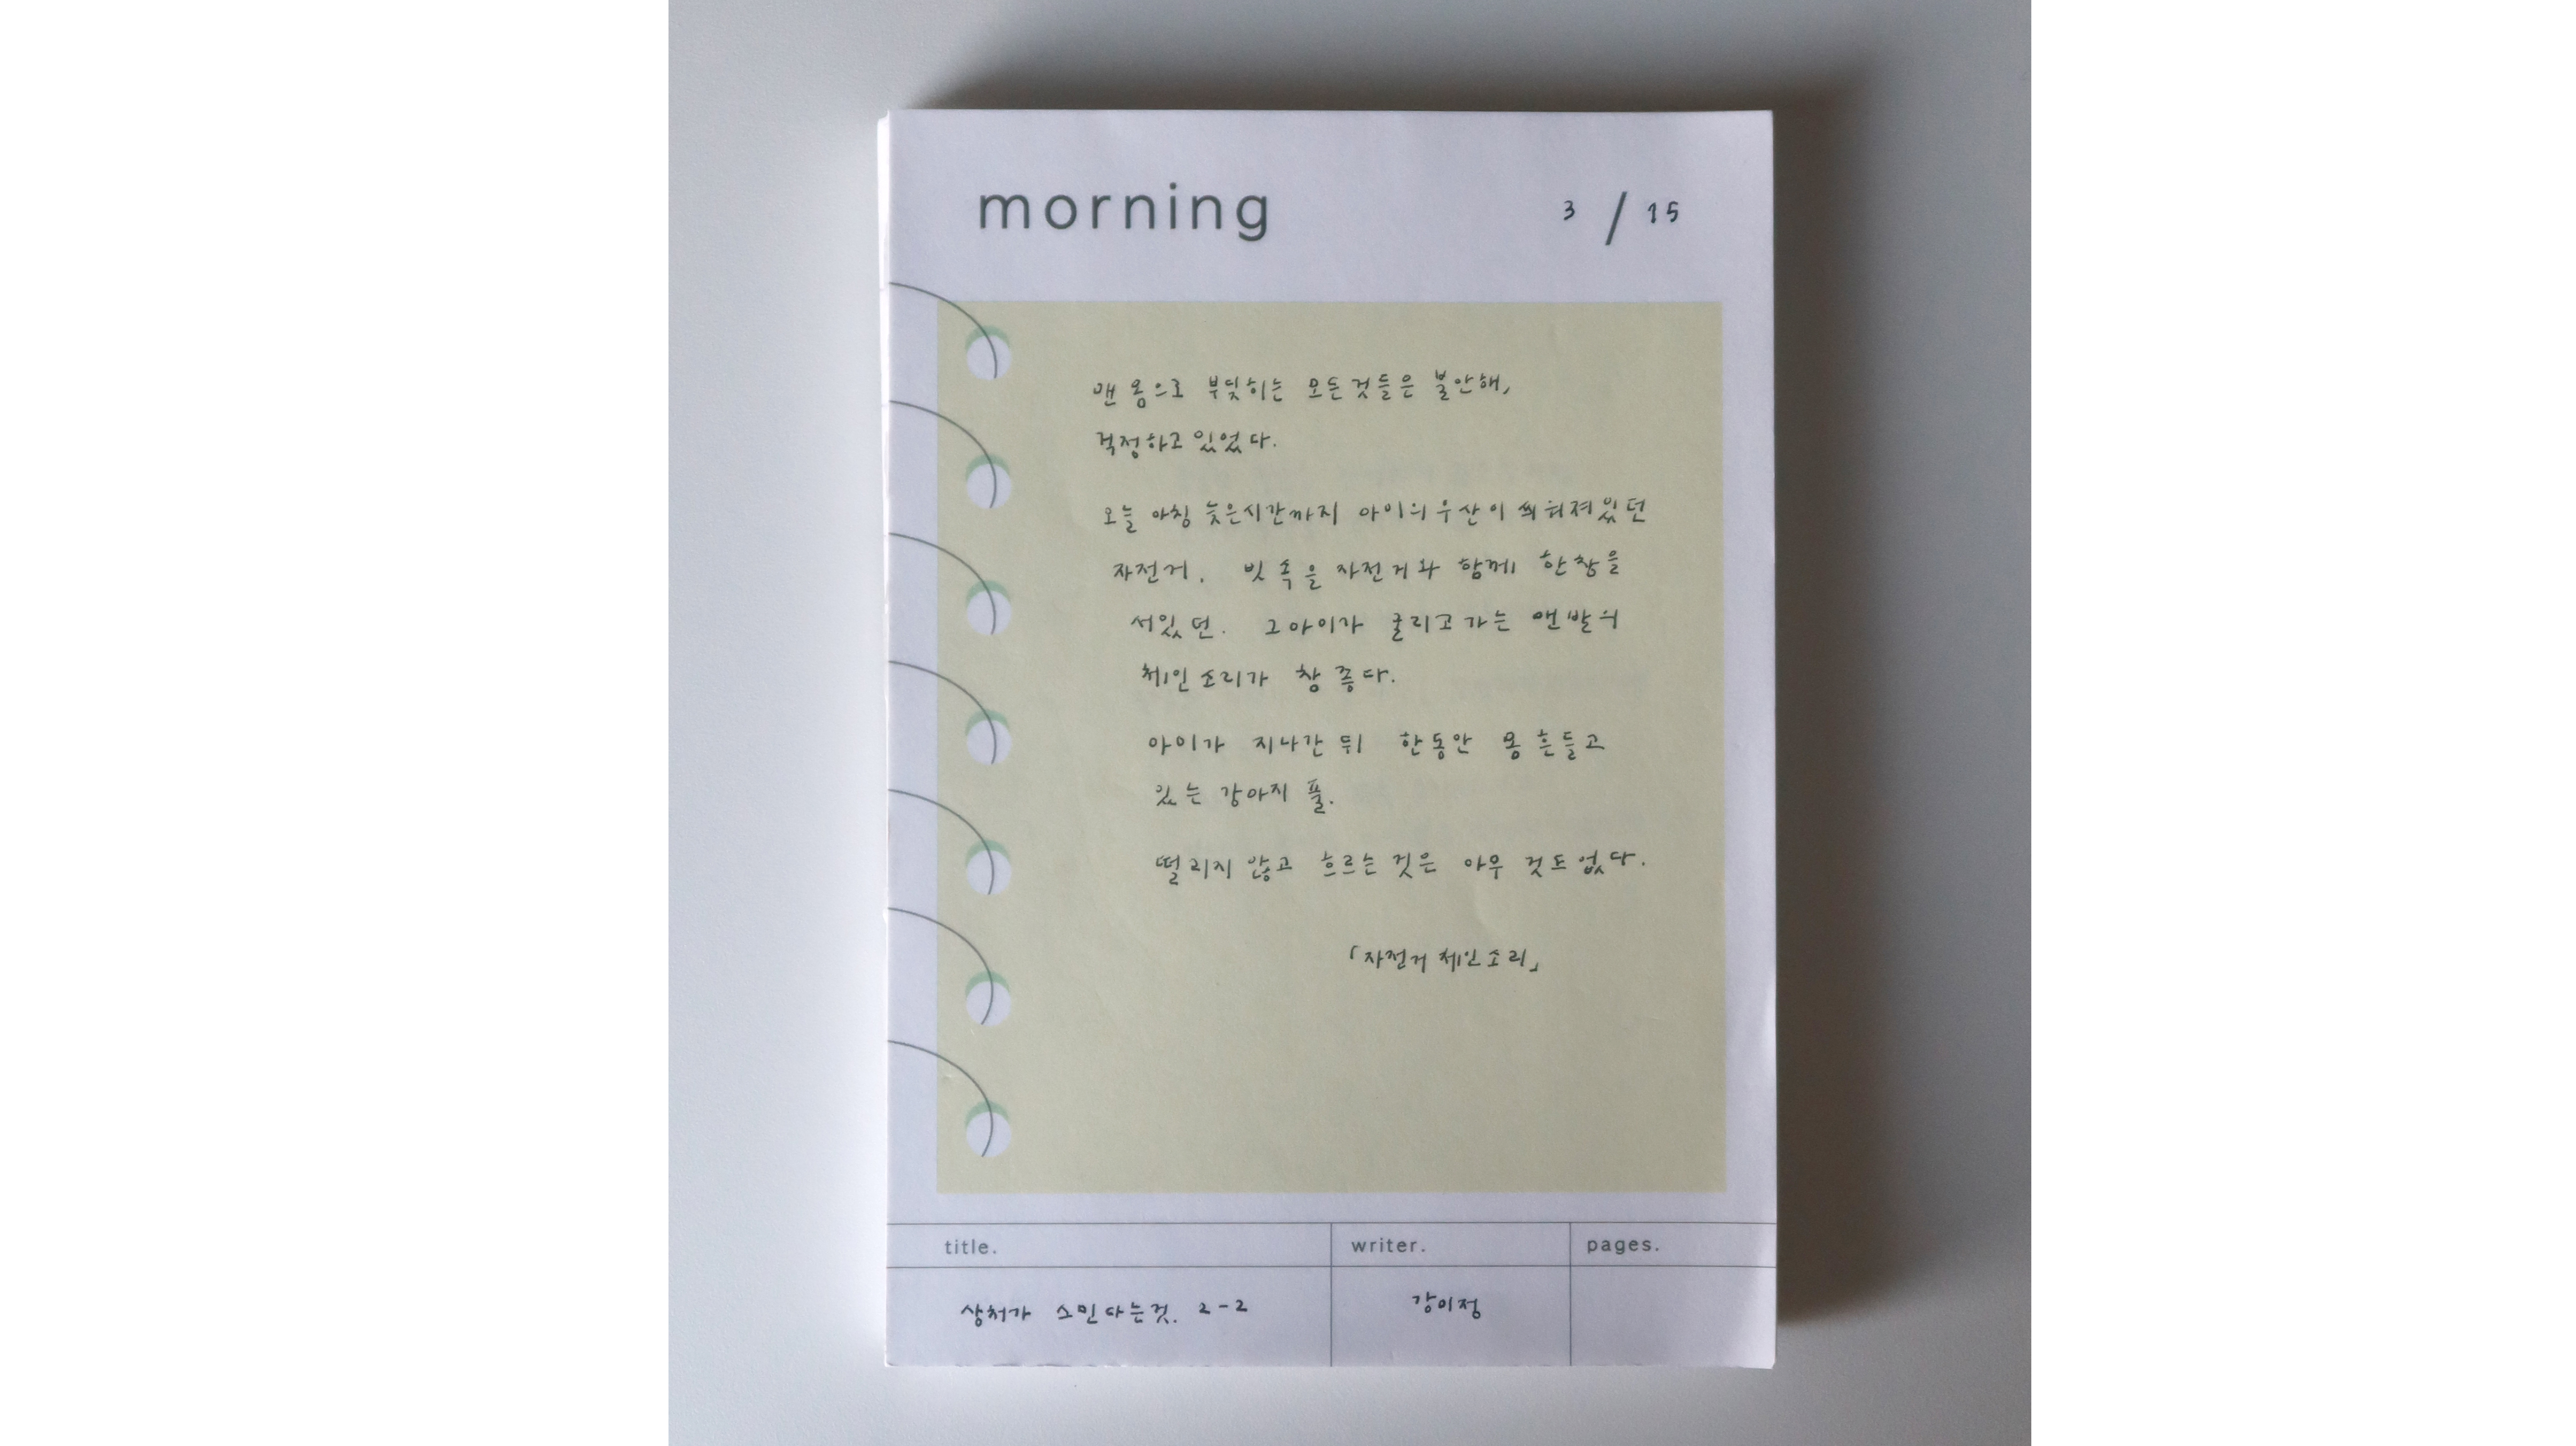 morning 3 / 15
맨 몸으로 부딪히는 모든것들은 불안해,
걱정하고 있었다.
오늘 아침 늦은시간까지 아이의 우산이 씌워져있던
자전거. 빗 속을 자전거와 함께 한참을
서있던. 그아이가 굴리고가는 맨발의
체인소리가 참 좋다.
아이가 지나간 뒤 한동안 몸 흔들고
있는 강아지 풀.
떨리지 않고 흐르는 것은 아무 것도 없다.
「자전거 체인소리」
title. writer. pages.
상처가 스민다는것. 2-2 강이정